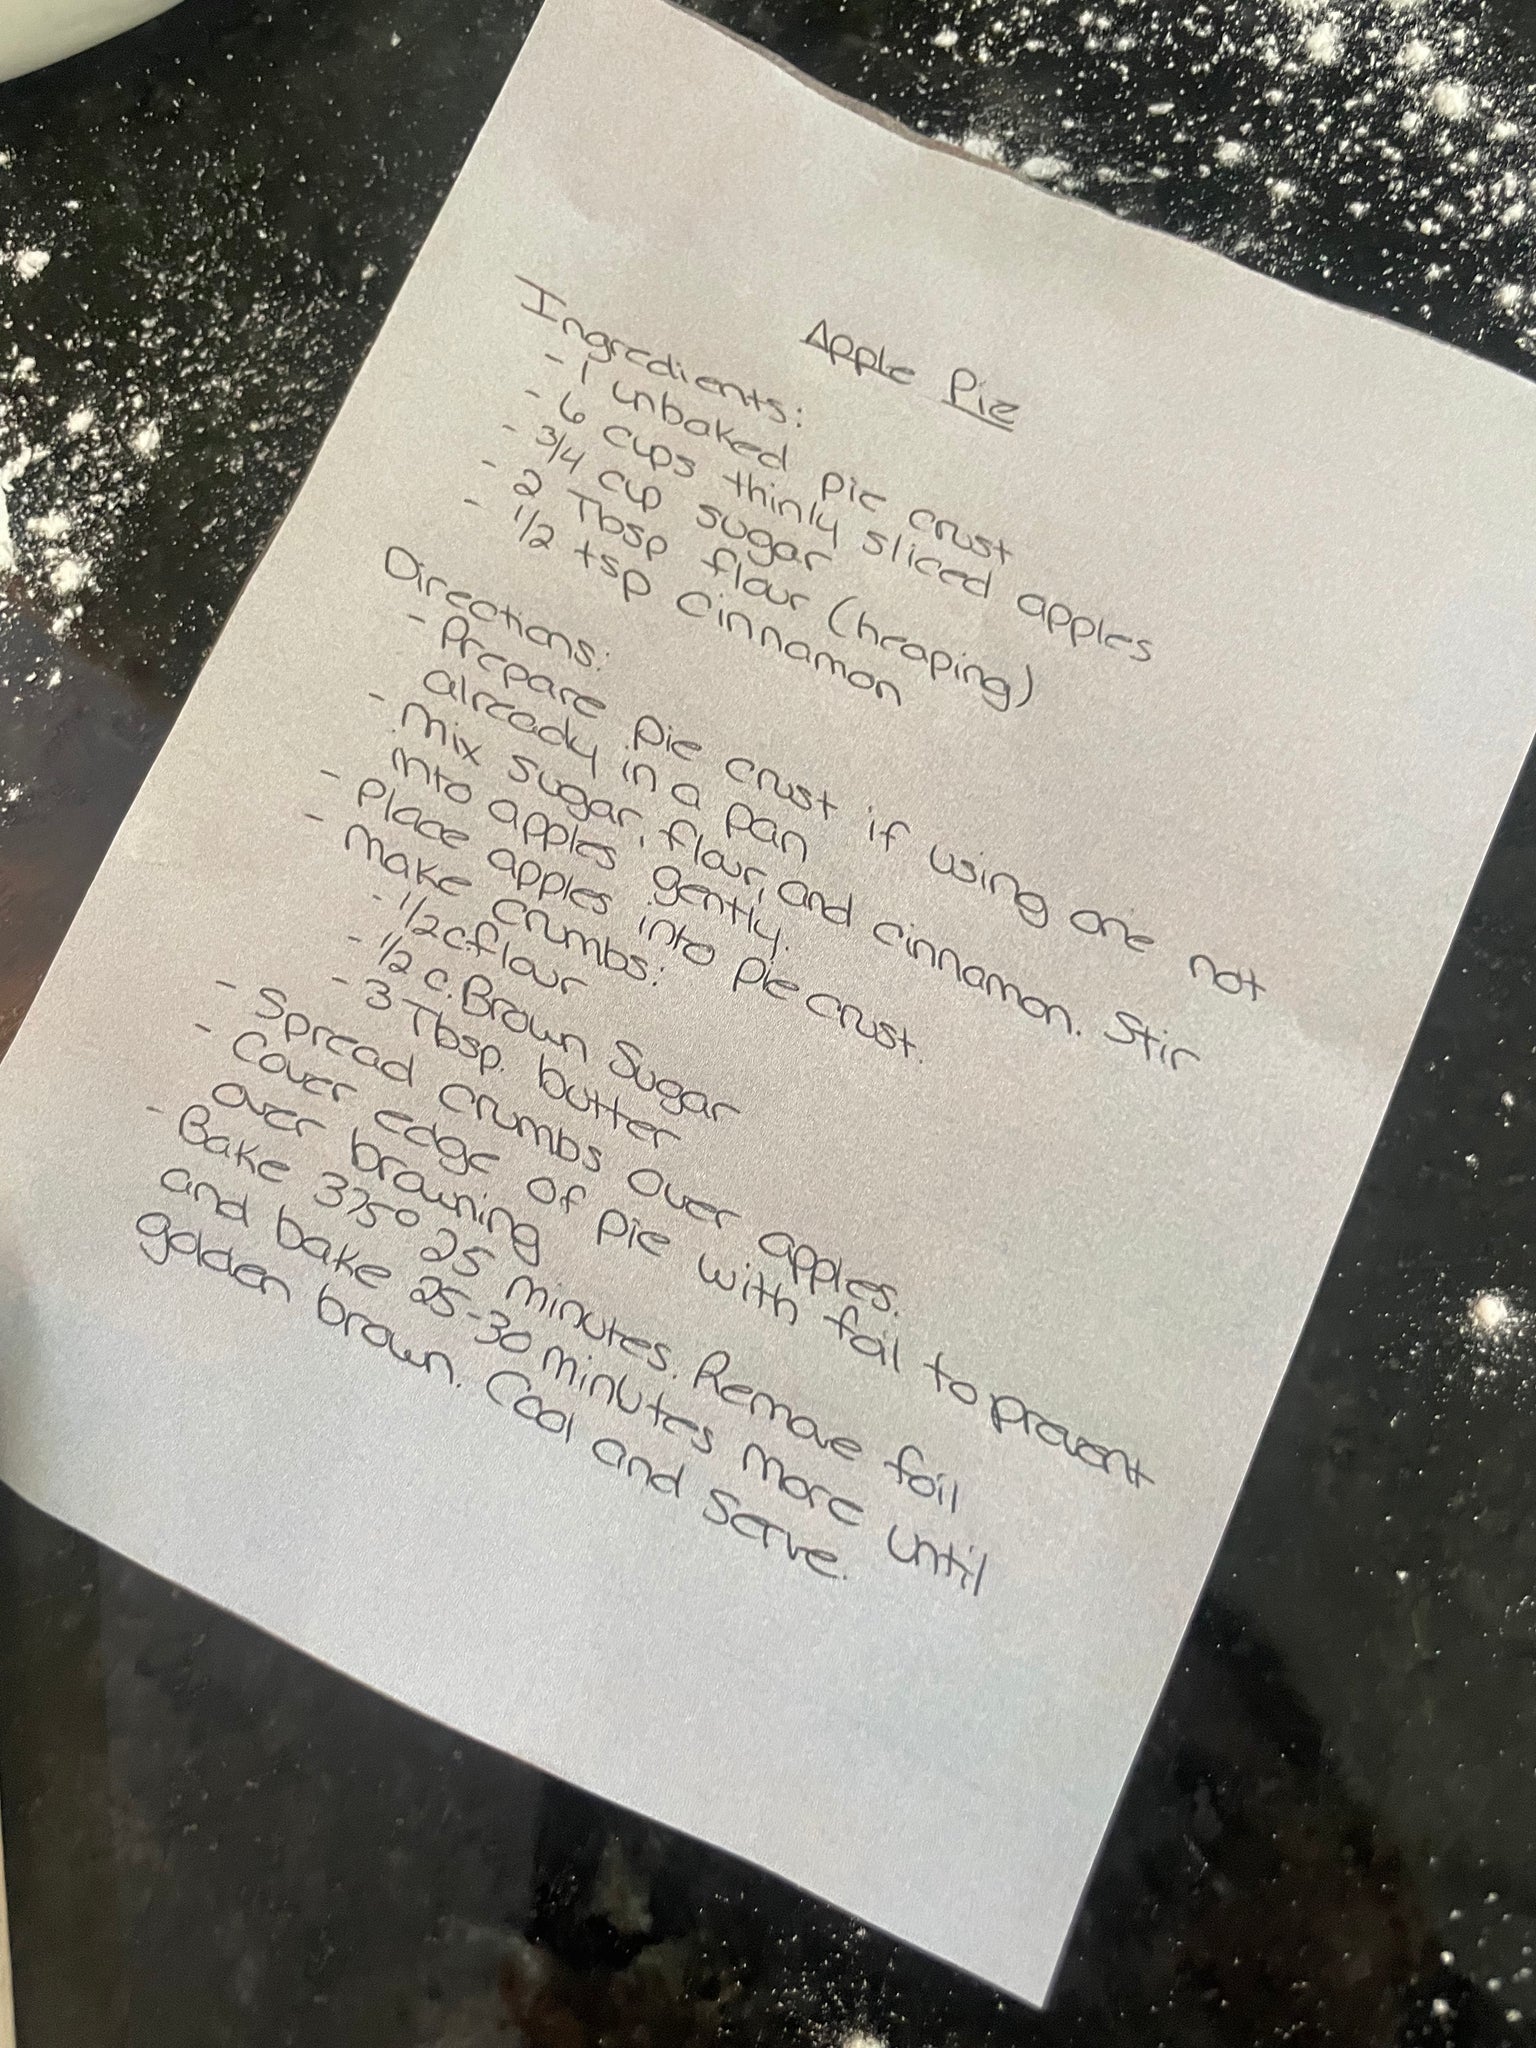 Apple Pie
Ingredients:
- 1 unbaked pie crust
- 6 cups thinly sliced apples
- 3/4 cup sugar
- 2 Tbsp flour (heaping)
- 1/2 tsp cinnamon
Directions:
- Prepare pie crust if using one not
already in a pan
- Mix sugar, flour, and cinnamon. Stir
into apples gently.
- Place apples into pie crust.
- Make crumbs:
- 1/2 c. flour
- 1/2 c. Brown Sugar
- 3 Tbsp. butter
- Spread crumbs over apples.
- Cover edge of pie with foil to prevent
over browning
- Bake 375° 25 minutes. Remove foil
and bake 25-30 minutes more until
golden brown. Cool and serve.